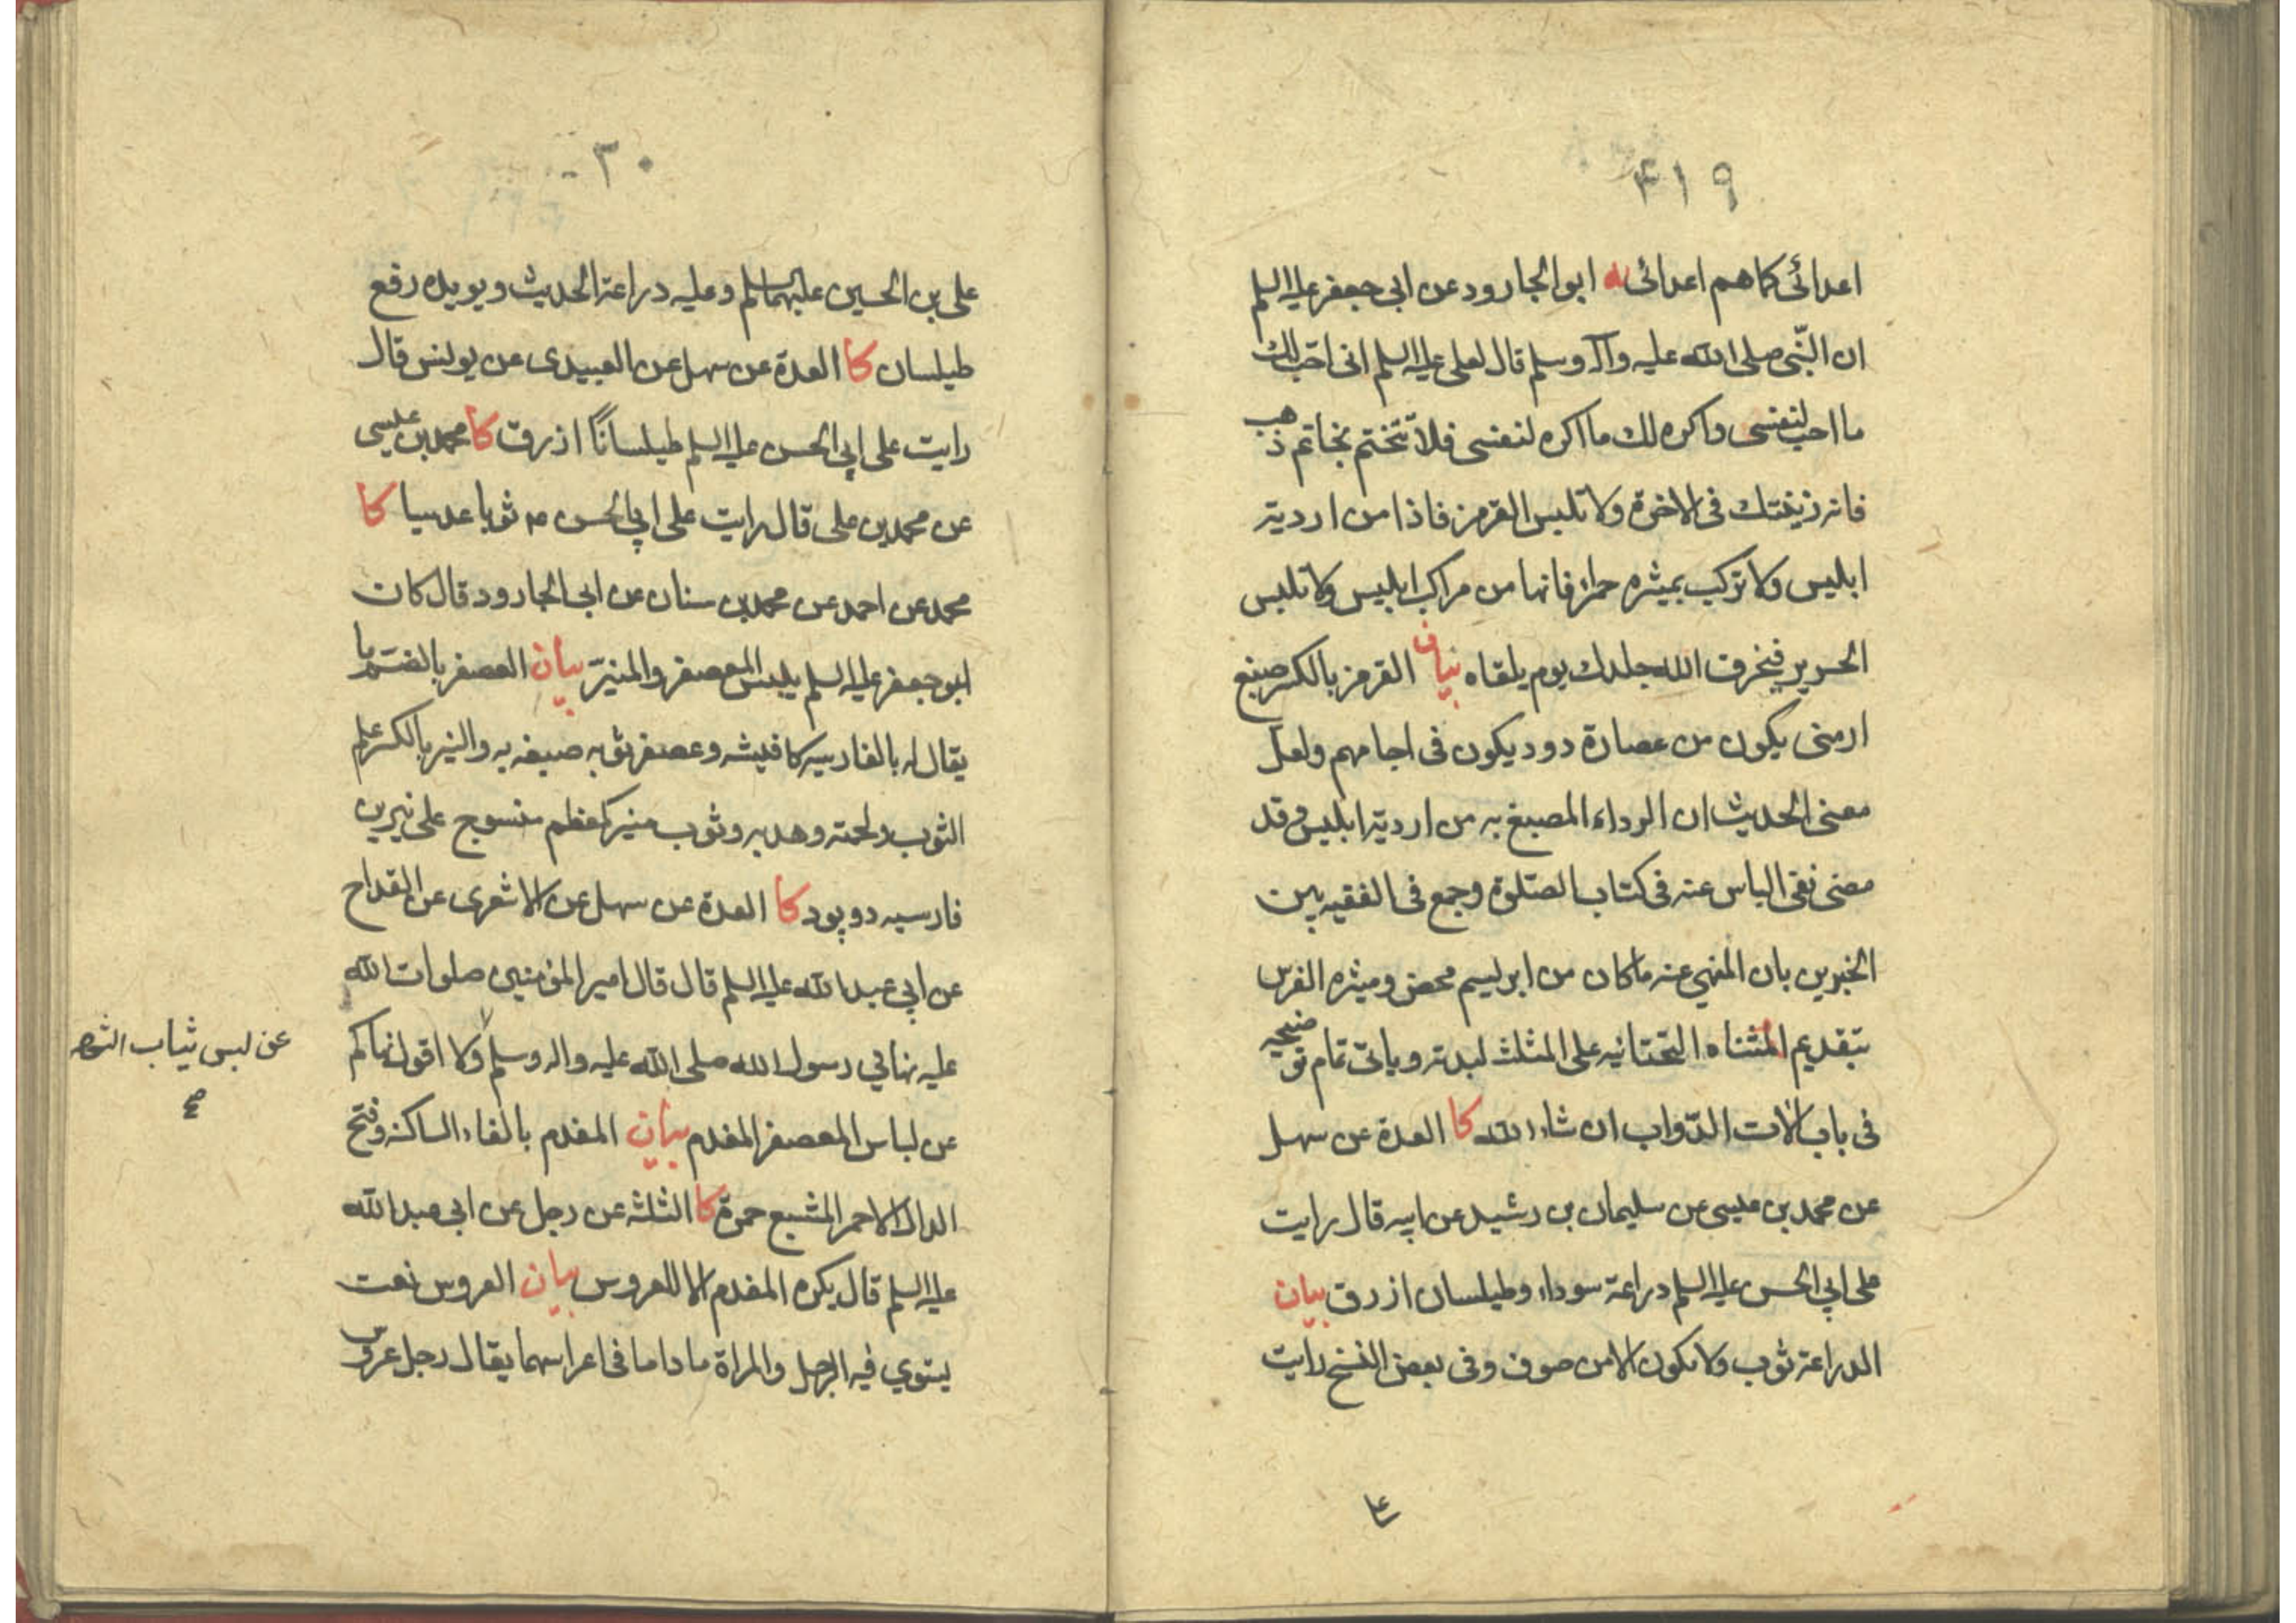 ۴۱۹
اعدائی کما هم اعدائی یه ابو الجارود عن ابی جعفر علیه السلم
ان النّبی صلی الله علیه وآله وسلم قال لعلی علیه السلم انی احب لك
ما احب لنفسی واکره لك ما اکره لنفسی فلا تتختم بخاتم ذهب
فانه زینتك فی الاخرة ولا تلبس القرمز فاذا من اردیة
ابلیس ولا ترکب بمیثره حمراء فانها من مراکب ابلیس ولا تلبس
الحریر فیخرق الله جلدك یوم یلقاه بیان القرمز بالکسر صبغ
ارمنی یکون من عصارة دود یکون فی اجامهم ولعلّ
معنی الحدیث ان الرداء المصبغ به من اردیة ابلیس وقد
مضی نفی الباس عنه فی کتاب الصّلوة وجمع فی الفقیه بین
الخبرین بان المنهی عنه ما کان من ابریسم محض ومیثره الفرس
بتقدیم المثناه التحتانیه علی المثلث لبدته ویاتی تمام توضیحه
فی باب الات الدّواب ان شاء الله کا العدة عن سهل
عن محمد بن عیسی عن سلیمان بن رشید عن ابیه قال رایت
علی ابی الحسن علیه السلم دراعة سوداء وطیلسان ازرق بیان
الدراعة ثوب ولا یکون الا من صوف وفی بعض النسخ رایت
علی
۳۰
علی بن الحسین علیهما السلم وعلیه دراعة الحدیث ویویده رفع
طیلسان کا العدة عن سهل عن العبیدی عن یونس قال
رایت علی ابی الحسن علیه السلم طیلسانًا ازرق کا محمد بن عیسی
عن محمد بن علی قال رایت علی ابی الحسن ع ثوبا عدسیا کا
محمد عن احمد عن محمد بن سنان عن ابی الجارود قال کان
ابو جعفر علیه السلم یلبس المعصفر والمنیّر بیان العصفر بالضم ما
یقال له بالفارسیه کافیشه وعصفر ثوبه صبغه به والنیر بالکسر علم
الثوب ولحمته وهدبه وثوب منیر کمعظم منسوج علی نیرین
فارسیه دو پود کا العدة عن سهل عن الاشعری عن القداح
عن ابی عبد الله علیه السلم قال قال امیر المؤمنین صلوات الله
علیه نهانی رسول الله صلی الله علیه واله وسلم ولا اقول نهاکم
عن لبس ثیاب الشهره
صح
عن لباس المعصفر المفدم بیان المفدم بالفاء الساکنه وفتح
الدال الاحمر المشبع حمرة کا الثلثة عن رجل عن ابی عبد الله
علیه السلم قال یکره المفدم الا للعروس بیان العروس نعت
یستوی فیه الرجل والمراة ما داما فی اعراسهما یقال رجل عروس